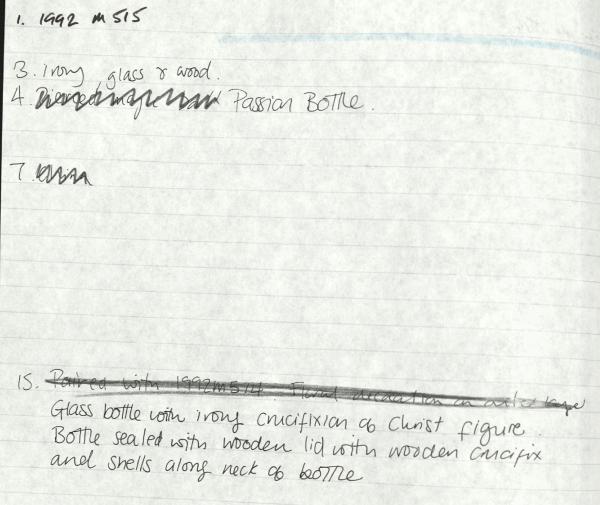 1. 1992 m 515
3. Ivory, glass & wood.
4. Passion Bottle.
7.
15. Paired with 1992m514. Floral decoration on
Glass bottle with ivory crucifixion of Christ figure.
Bottle sealed with wooden lid with wooden crucifix
and shells along neck of bottle